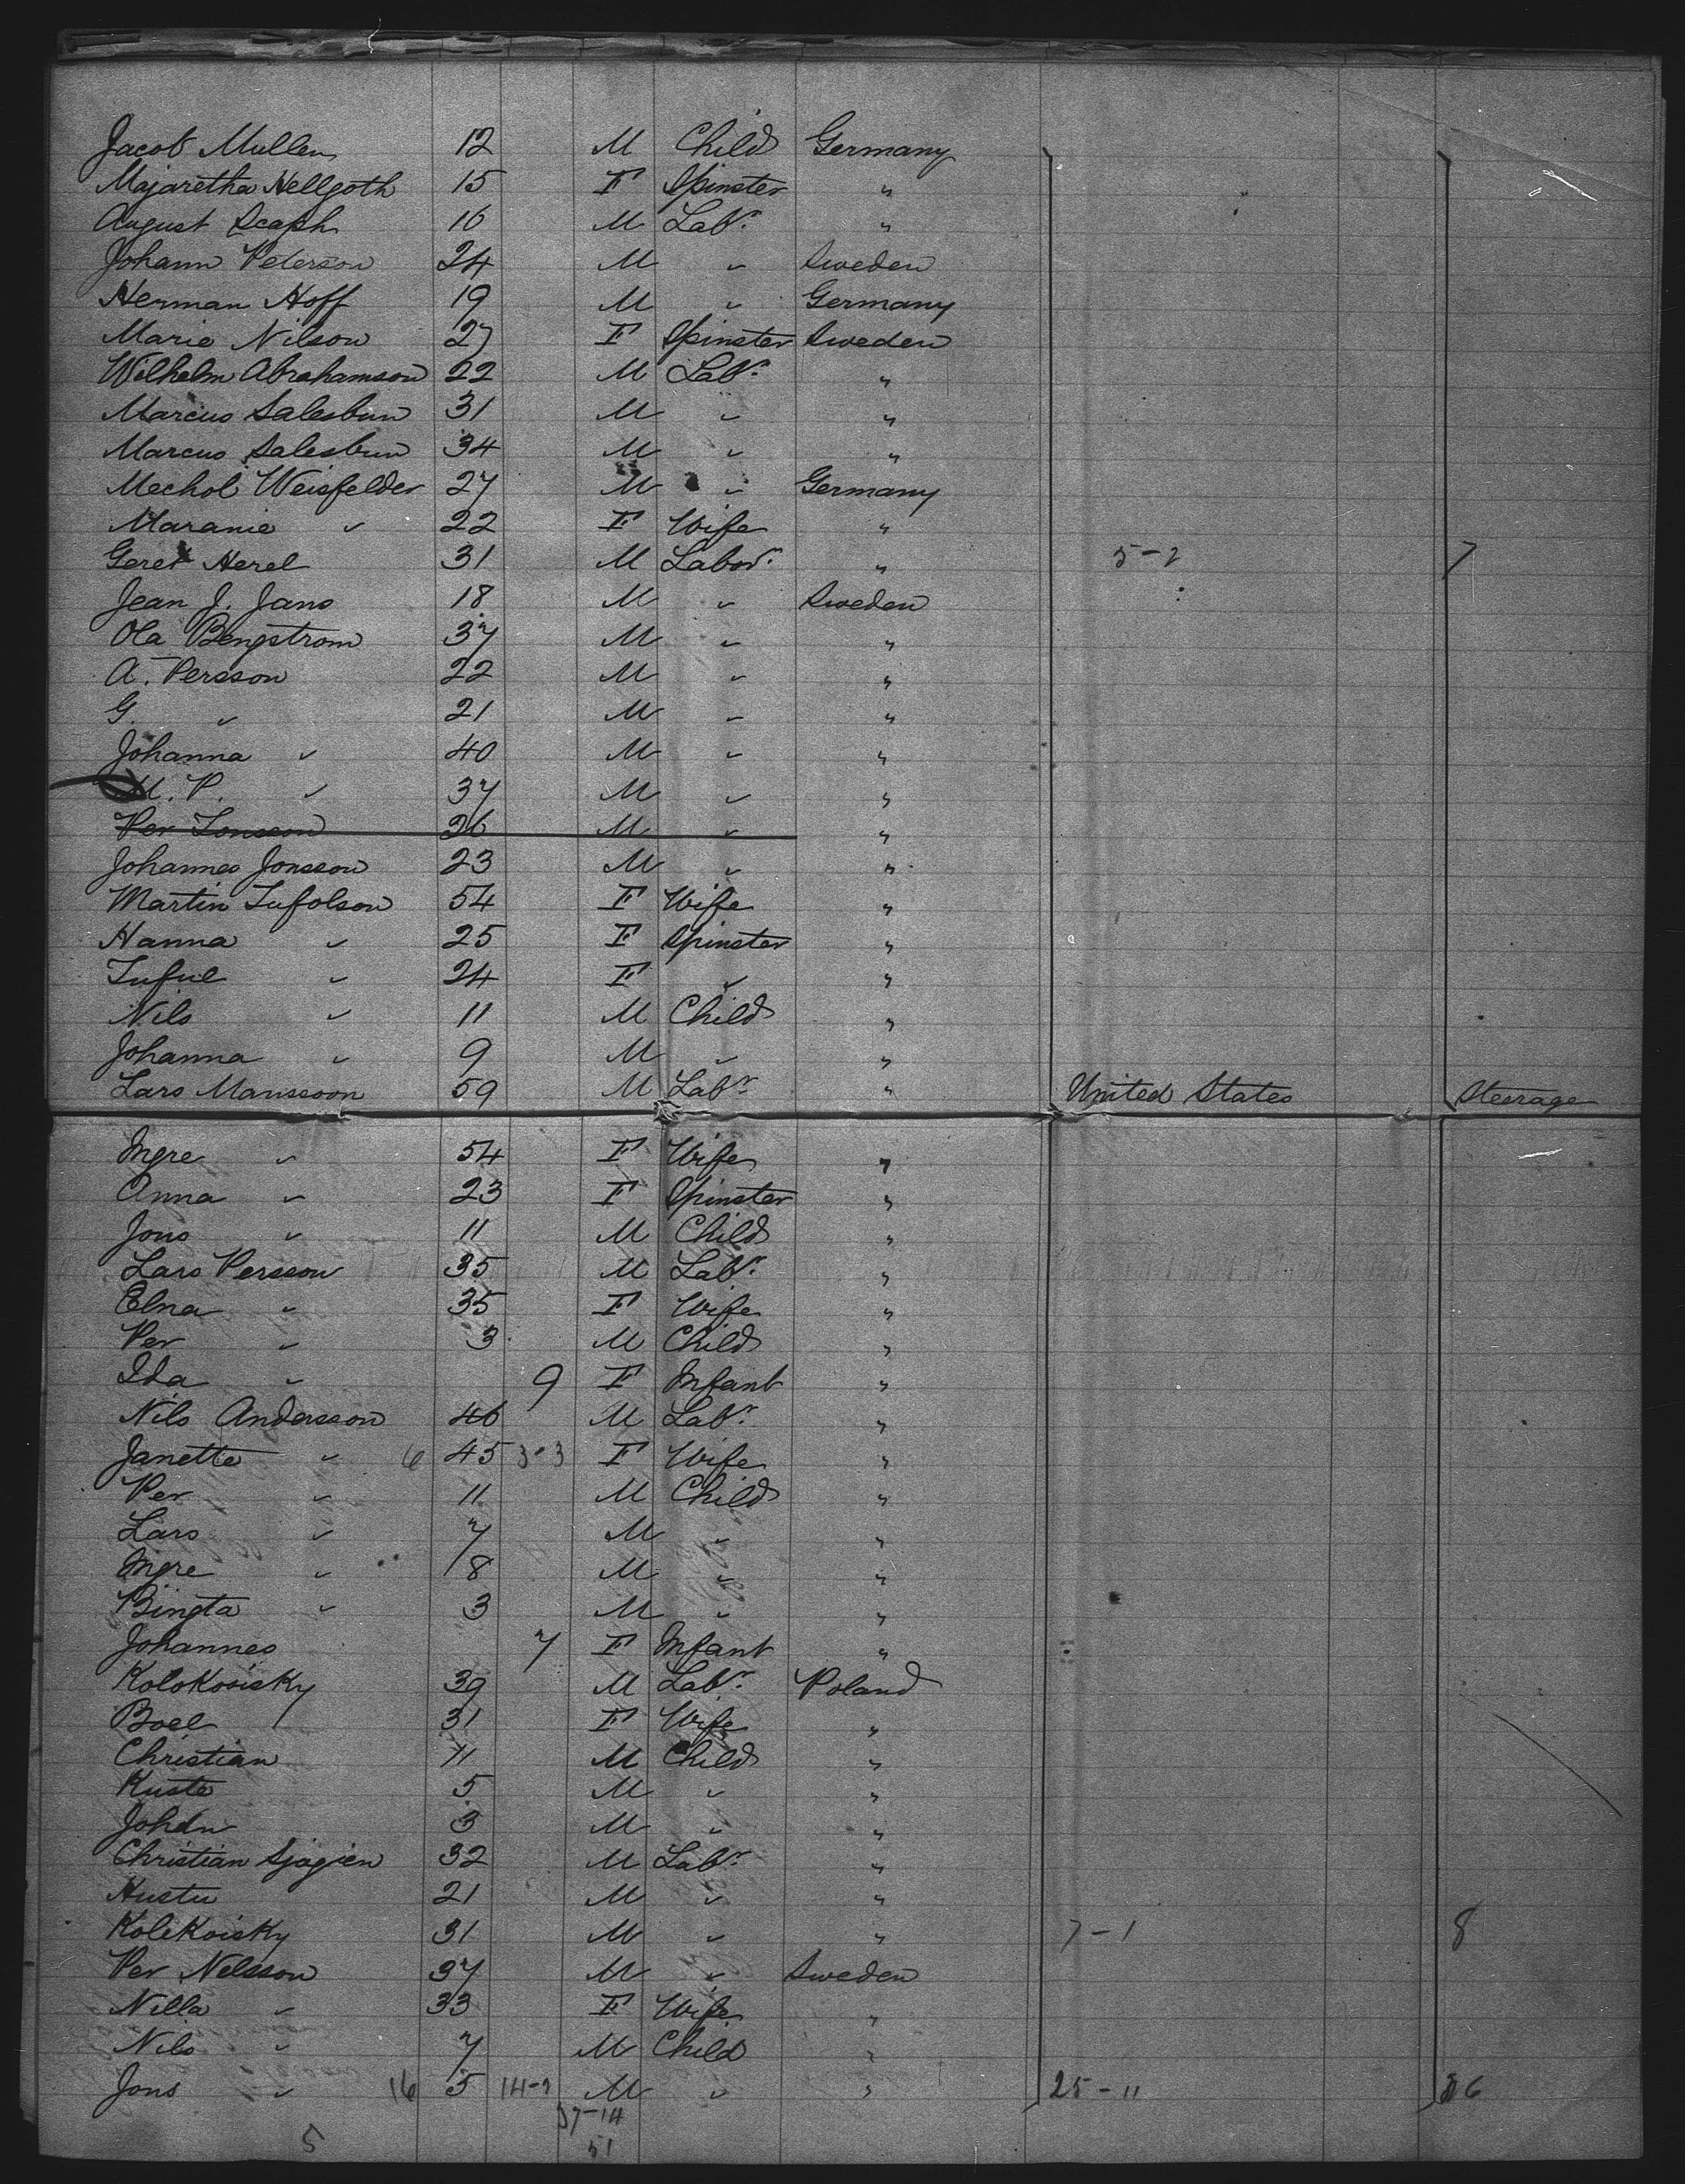 Jacob Mullen 12 M Child Germany
Majaretha Hellgoth 15 F Spinster "
August Scaph 16 M Labr. "
Johann Peterson 24 M " Sweden
Herman Hoff 19 M " Germany
Marie Nilson 27 F Spinster Sweden
Wilhelm Abrahamson 22 M Labr. "
Marcus Salesbun 31 M " "
Marcus Salesbun 34 M " "
Mechol Weisfelder 27 M " Germany
Maranie " 22 F Wife "
Geret Herel 31 M Labor. " 5-2 7
Jean J. Jans 18 M " Sweden
Ola Bengstrom 37 M " "
A. Persson 22 M " "
G. " 21 M " "
Johanna " 40 M " "
M. P. " 37 M " "
Per Jonsson 26 M " "
Johannes Jonsson 23 M " "
Martin Tufolson 54 F Wife "
Hanna " 25 F Spinster "
Tuful " 24 F " "
Nils " 11 M Child "
Johanna " 9 M " "
Lars Manssoon 59 M Labr " United States Steerage
Ingre " 54 F Wife "
Anna " 23 F Spinster "
Jons " 11 M Child "
Lars Persson 35 M Labr. "
Elna " 35 F Wife "
Per " 3 M Child "
Ida " 9 F Infant "
Nils Andersson 46 M Labr. "
Janette " 6 45 3-3 F Wife "
Per " 11 M Child "
Lars " 7 M " "
Ingre " 8 M " "
Bingta " 3 M " "
Johannes 7 F Infant "
Kolokosisky 39 M Labr. Poland
Boel 31 F Wife "
Christian 11 M Child "
Kuste 5 M " "
Johan 3 M " "
Christian Sjogien 32 M Labr. "
Hustu 21 M " "
Kolekoisky 31 M " " 7-1 8
Per Nelsson 37 M " Sweden
Nilla " 33 F Wife "
Nils " 7 M Child "
Jons " 16 5 14-1 M " " 25-11 36
37-14
5 51